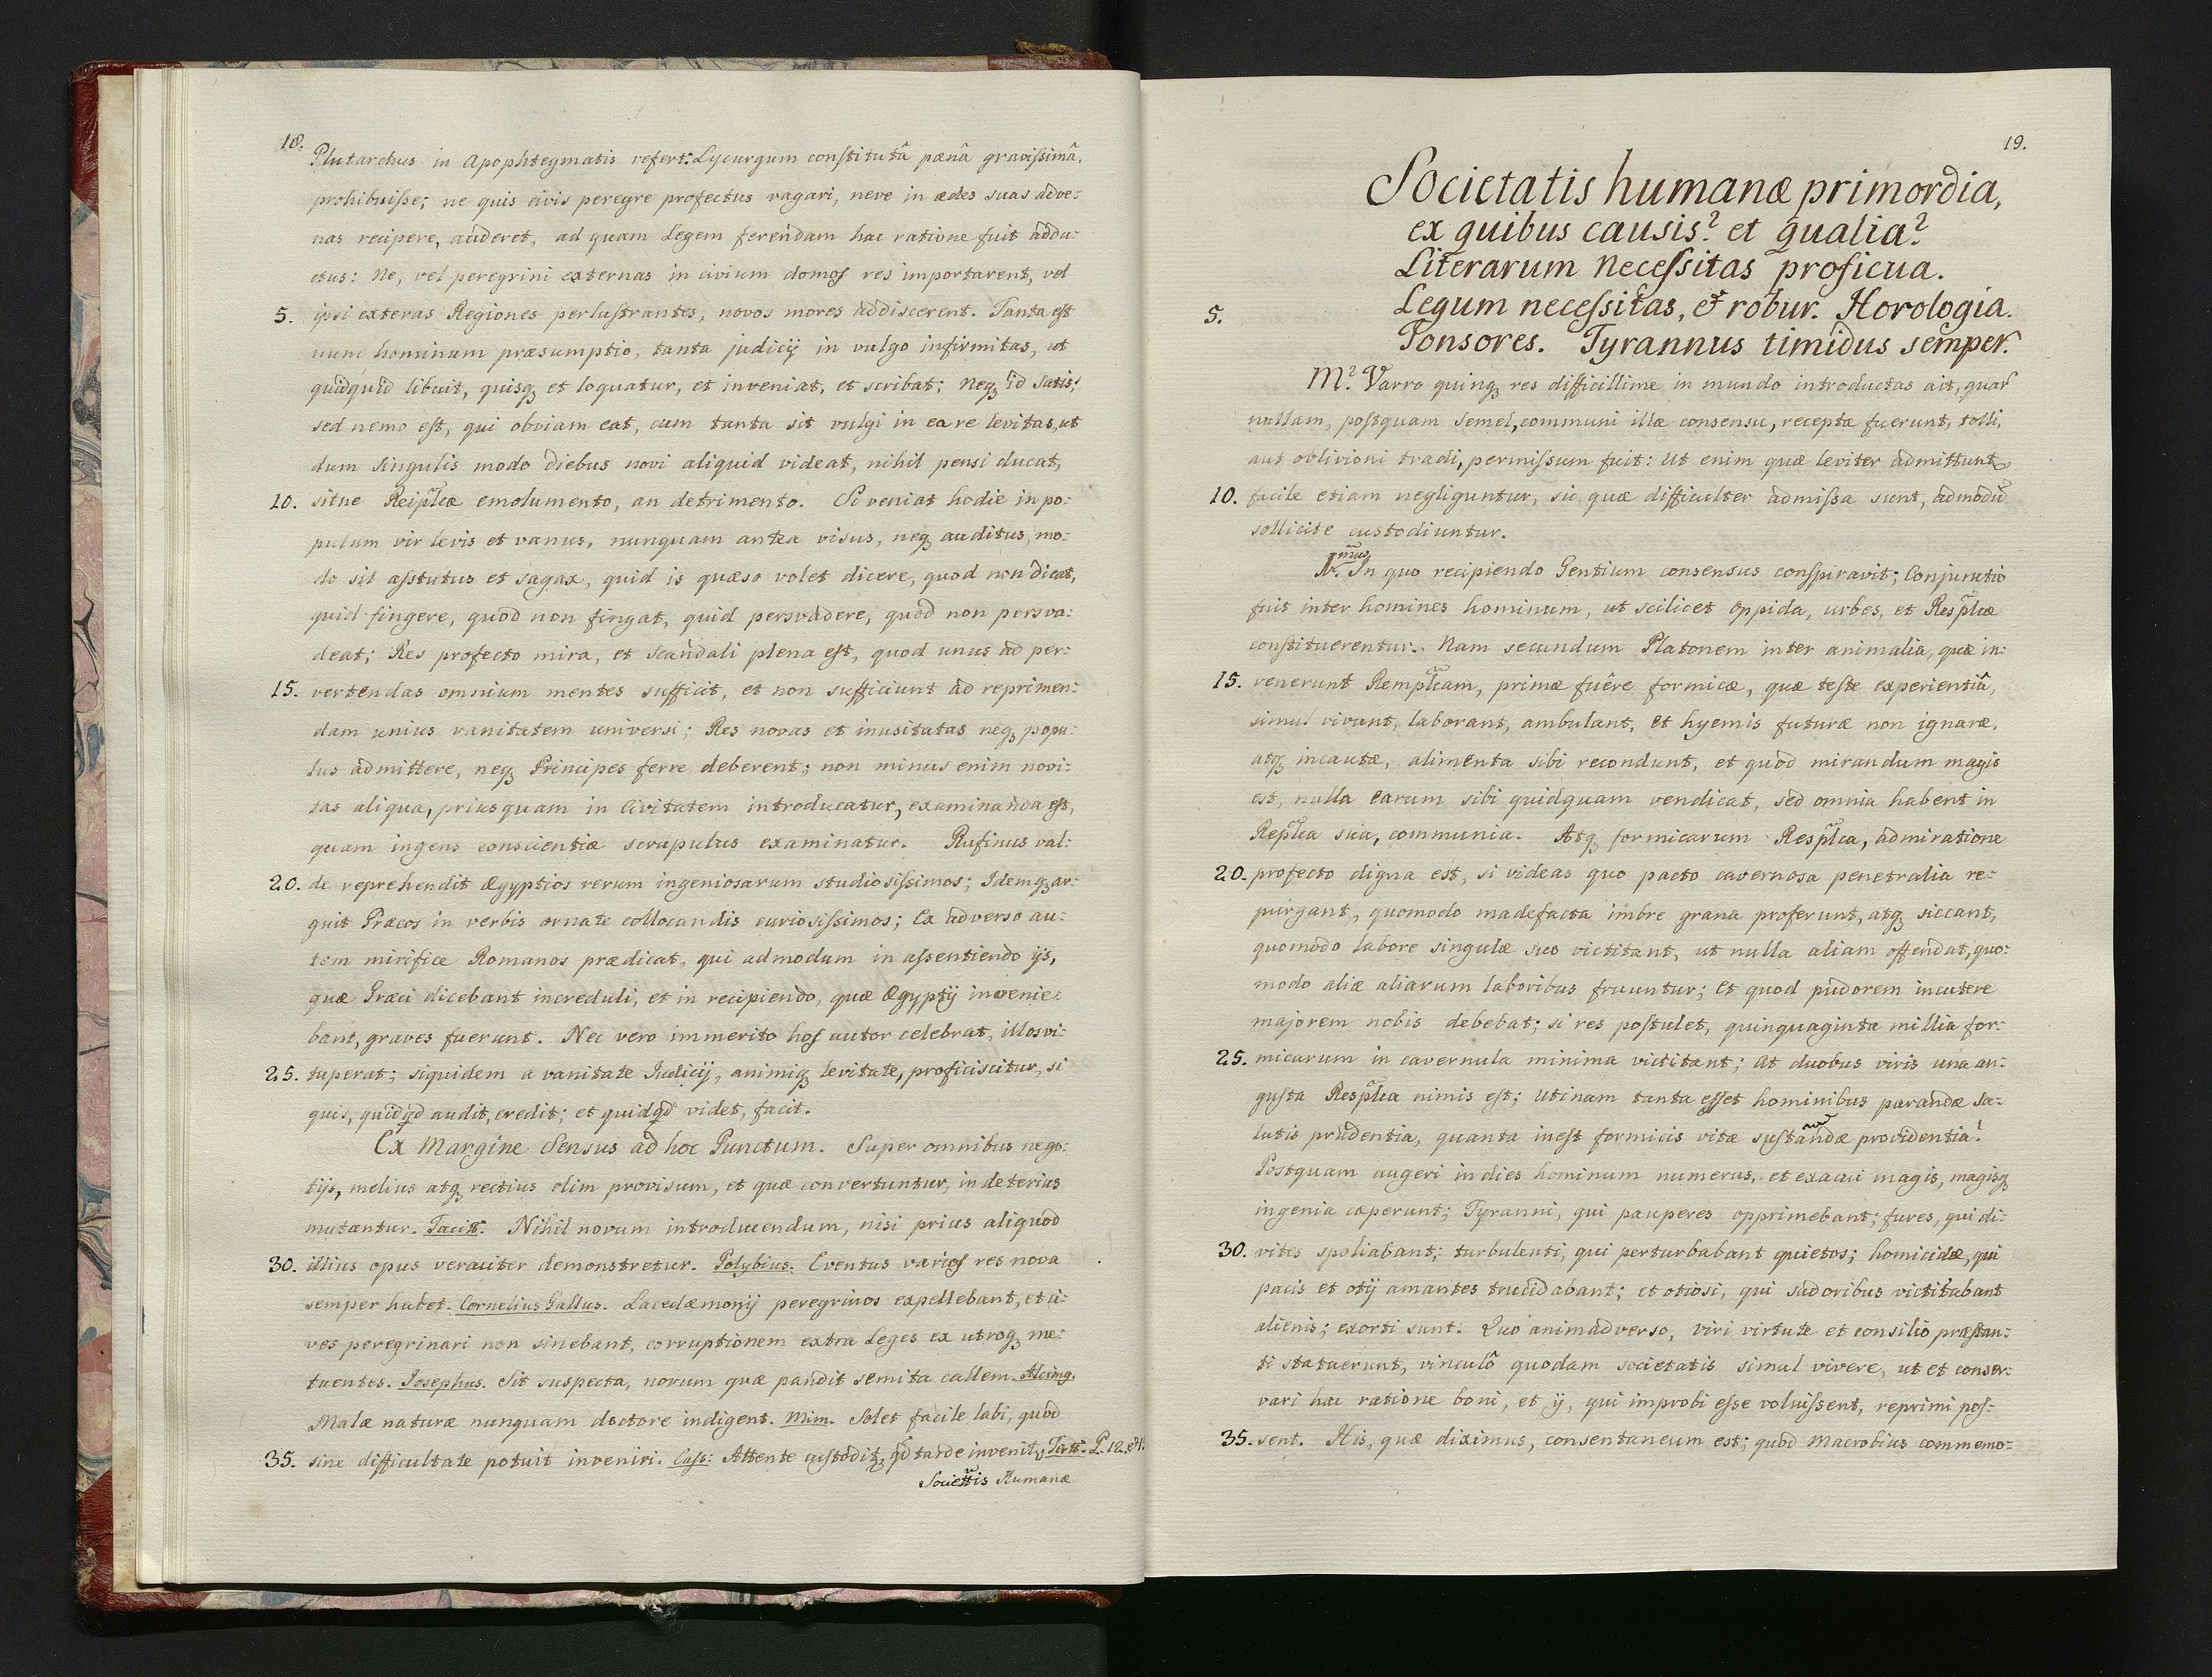 18.
Plutarchus in Apophtegmatis refert: Lycurgum constitutâ pœnâ gravissimâ,
prohibuisse; ne quis civis peregre profectus vagari, neve in ædes suas adve:
nas recipere, auderet, ad quam Legem ferendam hac ratione fuit addu:
ctus: Ne, vel peregrini externas in civium domos res importarent, vel
5. ipsi exteras Regiones perlustrantes, novos mores addiscerent. Tanta est
nunc hominum præsumptio, tanta judicij in vulgo infirmitas, ut
quidquid libuit, quisq et loquatur, et inveniat, et scribat; Neq id satis!
sed nemo est, qui obviam eat, cum tanta sit vulgi in ea re levitas, ut
dum singulis modo diebus novi aliquid videat, nihil pensi ducat,
10. sitne Reiplcæ emolumento, an detrimento. Si veniat hodie in po:
pulum vir levis et vanus, nunquam antea visus, neq auditus, mo:
do sit asstutus et sagax, quid is quæso volet dicere, quod non dicat,
quid fingere, quod non fingat, quid persvadere, quod non persva:
deat; Res profecto mira, et scandali plena est, quod unus ad per:
15. vertendas omnium mentes sufficit, et non sufficiunt ad reprimen:
dam unius vanitatem universi; Res novas et inusitatas neq popu:
lus admittere, neq Principes ferre deberent; non minus enim novi:
tas aliqua, priusquam in Civitatem introducatur, examinanda est,
quam ingens conscientiæ scrupulus examinatur. Rufinus val:
20. de reprehendit Ægyptios rerum ingeniosarum studiosissimos; Idemq ar:
guit Græcos in verbis ornate collocandis curiosissimos; Ex adverso au:
tem mirifice Romanos prædicat, qui admodum in assentiendo ijs,
quæ Græci dicebant increduli, et in recipiendo, quæ Ægyptij invenie:
bant, graves fuerunt. Nec vero immerito hos autor celebrat, illos vi:
25. tuperat; siquidem a vanitate Iudicij, animiq levitate, proficiscitur, si
quis, quidqd audit, credit; et quidqd videt, facit.
Ex Margine Sensus ad hoc Punctum. Super omnibus nego:
tijs, melius atq rectius olim provisum, et quæ convertuntur, in deterius
mutantur. Tacit. Nihil novum introducendum, nisi prius aliquod
30. illius opus veraciter demonstretur. Polybius. Eventus varios res nova
semper habet. Cornelius Gallus. Lacedæmonij peregrinos expellebant, et ci:
ves peregrinari non sinebant, corruptionem extra Leges ex utroq me:
tuentes. Josephus. Sit suspecta, novum quæ pandit semita callem. Alcimg.
Malæ naturæ nunquam doctore indigent. Mim. Solet facile labi, quod
35. sine difficultate potuit inveniri. Cass: Attente custoditr, qd tarde invenitr. Tertt. P. 12. et1.
Societtis Humanæ
19.
Societatis humanæ primordia,
ex quibus causis? et qualia?
Literarum Necessitas proficua.
5. Legum necessitas, et robur. Horologia.
Tonsores. Tyrannus timidus semper.
M? Varro quinq res difficillime in mundo introductas ait, quar
nullam, postquam semel, communi illæ consensu, receptæ fuerunt, tolli,
aut oblivioni tradi, permissum fuit: Ut enim quæ leviter admittunt
10. facile etiam negliguntur, sic quæ difficulter admissa sunt, admodū
sollicite custodiuntur.
Imus. In quo recipiendo Gentium consensus conspiravit; Conjunctio
fuit inter homines hominum, ut scilicet oppida, urbes, et Resplcæ
constituerentur. Nam secundum Platonem inter animalia, quæ in:
15. venerunt Remplcam, primæ fuêre formicæ, quæ teste experientiâ,
simul vivunt, laborant, ambulant, et hyemis futuræ non ignaræ,
atq incautæ, alimenta sibi recondunt, et quod mirandum magis
est, nulla earum sibi quidquam vendicat, sed omnia habent in
Replca sua, communia. Atq formicarum Resplca, admiratione
20. profecto digna est, si videas quo pacto cavernosa penetralia re:
purgant, quomodo madefacta imbre grana proferunt, atq siccant,
quomodo labore singulæ suo victitant, ut nulla aliam offendat, quo:
modo aliæ aliarum laboribus fruuntur; Et quod pudorem incutere
majorem nobis debebat; si res postulet, quinquaginta millia for:
25. micarum in cavernula minima victitant; At duobus viris una au:
gusta Resplca nimis est; Utinam tanta esset hominibus parandæ sa:
lutis prudentia, quanta inest formicis vitæ sustandæ providentia!
Postquam augeri indies hominum numerus, et exacui magis, magisq
ingenia cæperunt; Tyranni, qui pauperes opprimebant; fures, qui di:
30. vites spoliabant; turbulenti, qui perturbabant quietos; homicidæ, qui
pacis et otij amantes trucidabant; et otiosi, qui sudoribus victitabant
alienis; exorti sunt. Quo animadverso, viri virtute et consilio præstan:
ti statuerunt, vinculô quodam societatis simul vivere, ut et conser:
vari hac ratione boni, et ij, qui improbi esse voluissent, reprimi pos:
35. sent. His, quæ diximus, consentaneum est; quod Macrobius commemo: